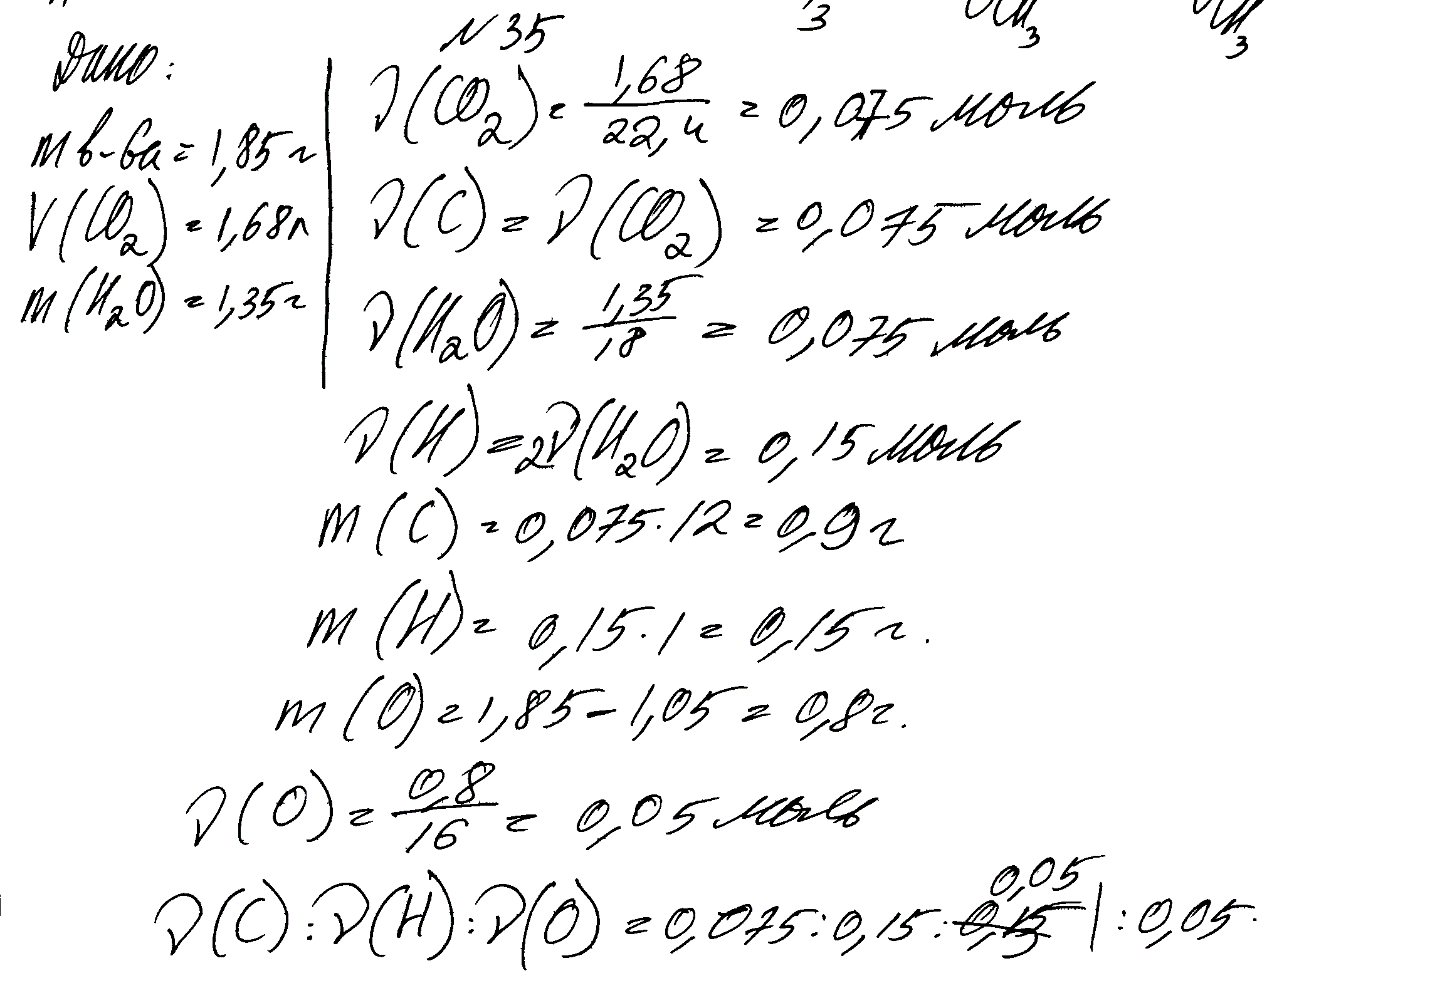 3 CH3 CH3
N35
Дано:
m в-ва = 1,85 г
V(CO2) = 1,68 л
m(H2O) = 1,35 г
ν(CO2) = 1,68/22,4 = 0,075 моль
ν(C) = ν(CO2) = 0,075 моль
ν(H2O) = 1,35/18 = 0,075 моль
ν(H) = 2ν(H2O) = 0,15 моль
m(C) = 0,075·12 = 0,9 г
m(H) = 0,15·1 = 0,15 г.
m(O) = 1,85 - 1,05 = 0,8 г.
ν(O) = 0,8/16 = 0,05 моль
ν(C):ν(H):ν(O) = 0,075:0,15:0,05 | :0,05.